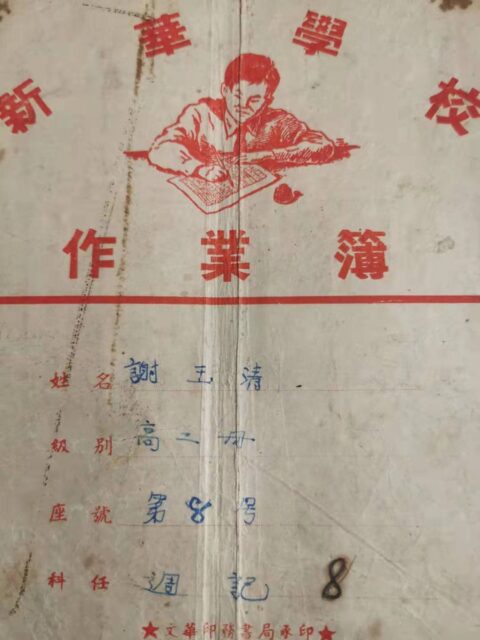 新華學校
作業簿
姓名 謝玉清
級别 高二册
座號 第8号
科任 週記 8
★文華印務書局承印★